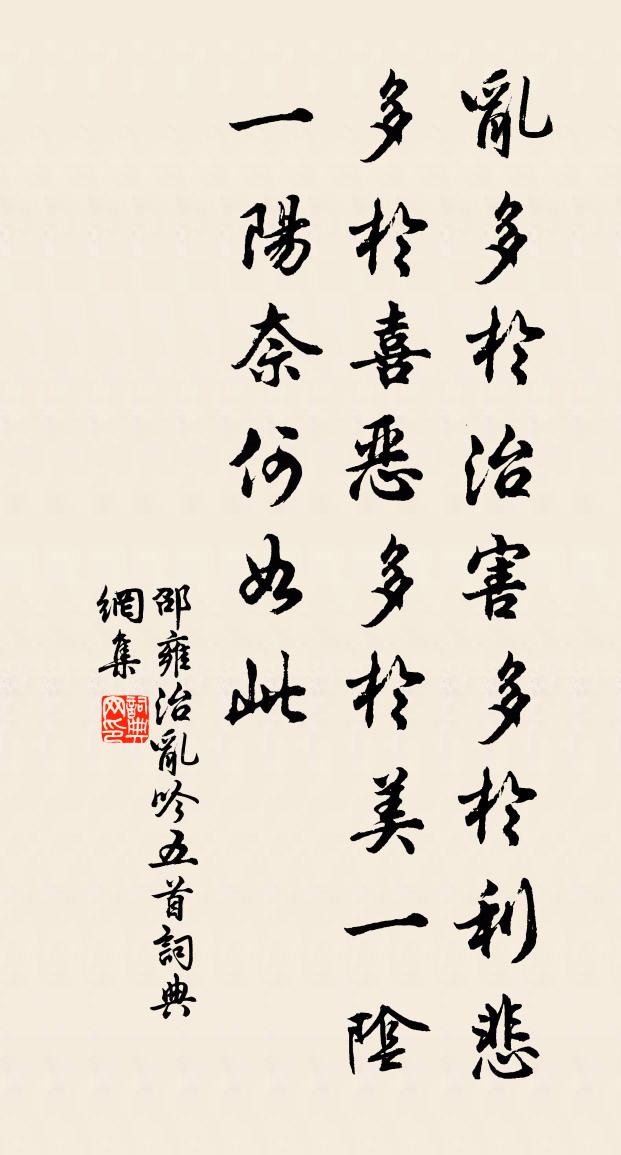 亂多於治害多於利悲
多於喜惡多於美一陰
一陽奈何如此
邵雍治亂吟五首詞典
網集
詞典
网印